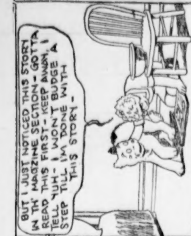 BUT I JUST NOTICED THIS STORY
IN TH' MAGZINE SECTION - GOTTA
READ THIS FIRST - KEEP AWAY, I
TELL YUH - I WON'T BUDGE A
STEP TILL I'M DONE WITH
THIS STORY -